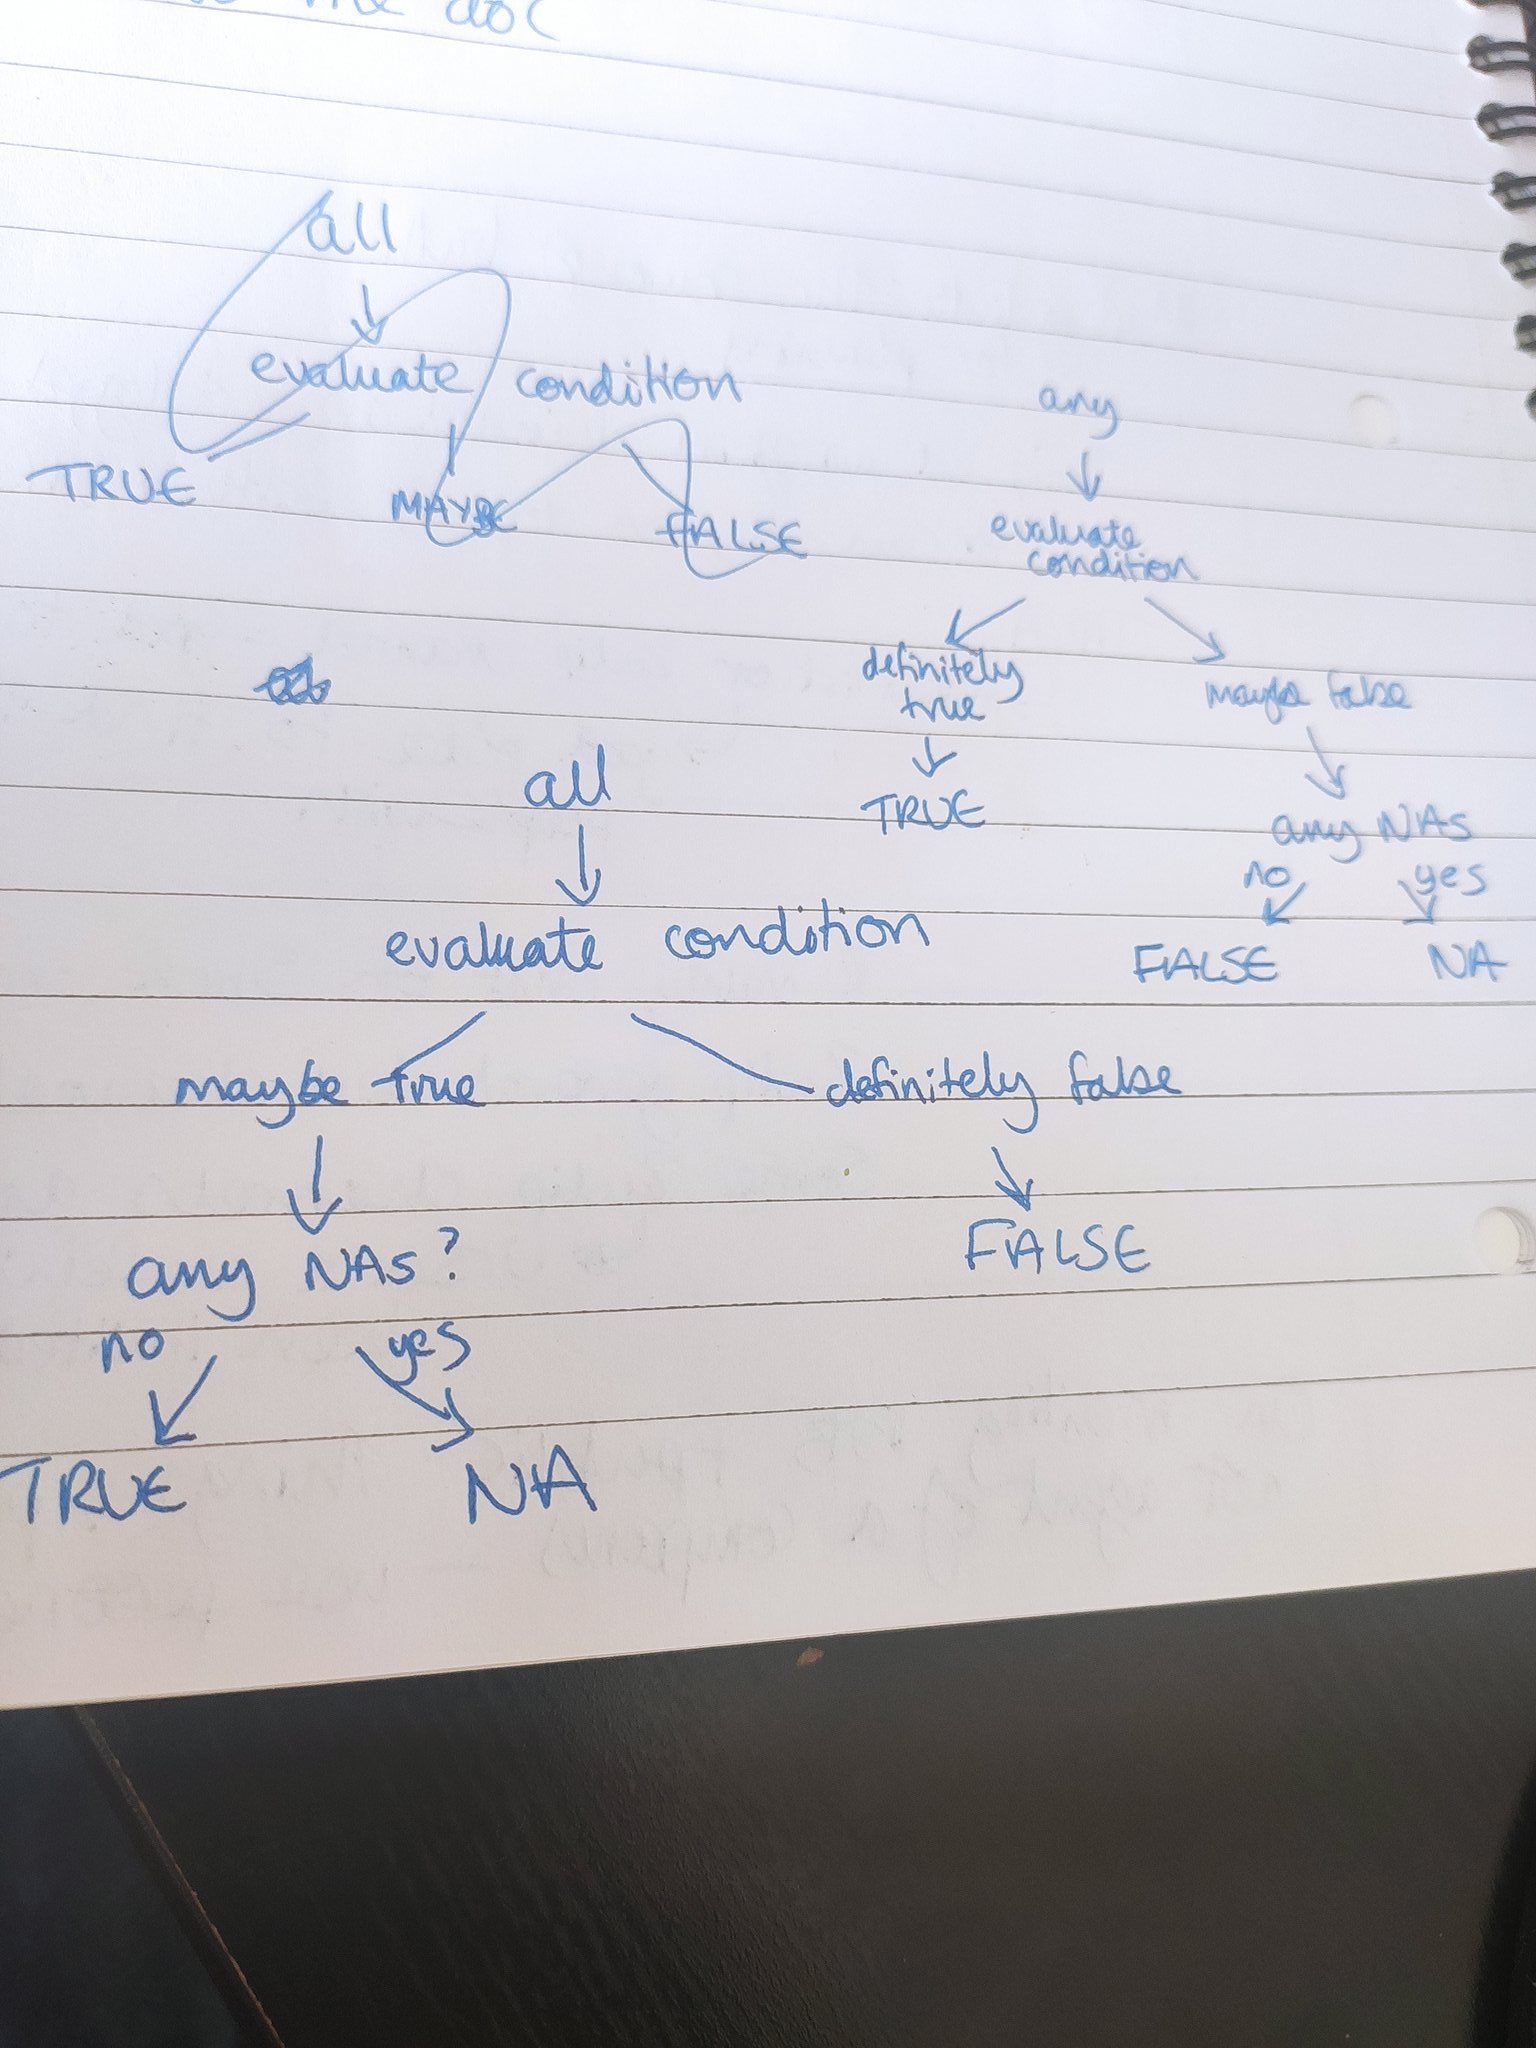 the doc
all
evaluate condition
TRUE MAYBE FALSE
any
evaluate
condition
definitely
true
maybe false
TRUE
any NAs
no yes
FALSE NA
all
evaluate condition
maybe true definitely false
any NAs? FALSE
no yes
TRUE NA